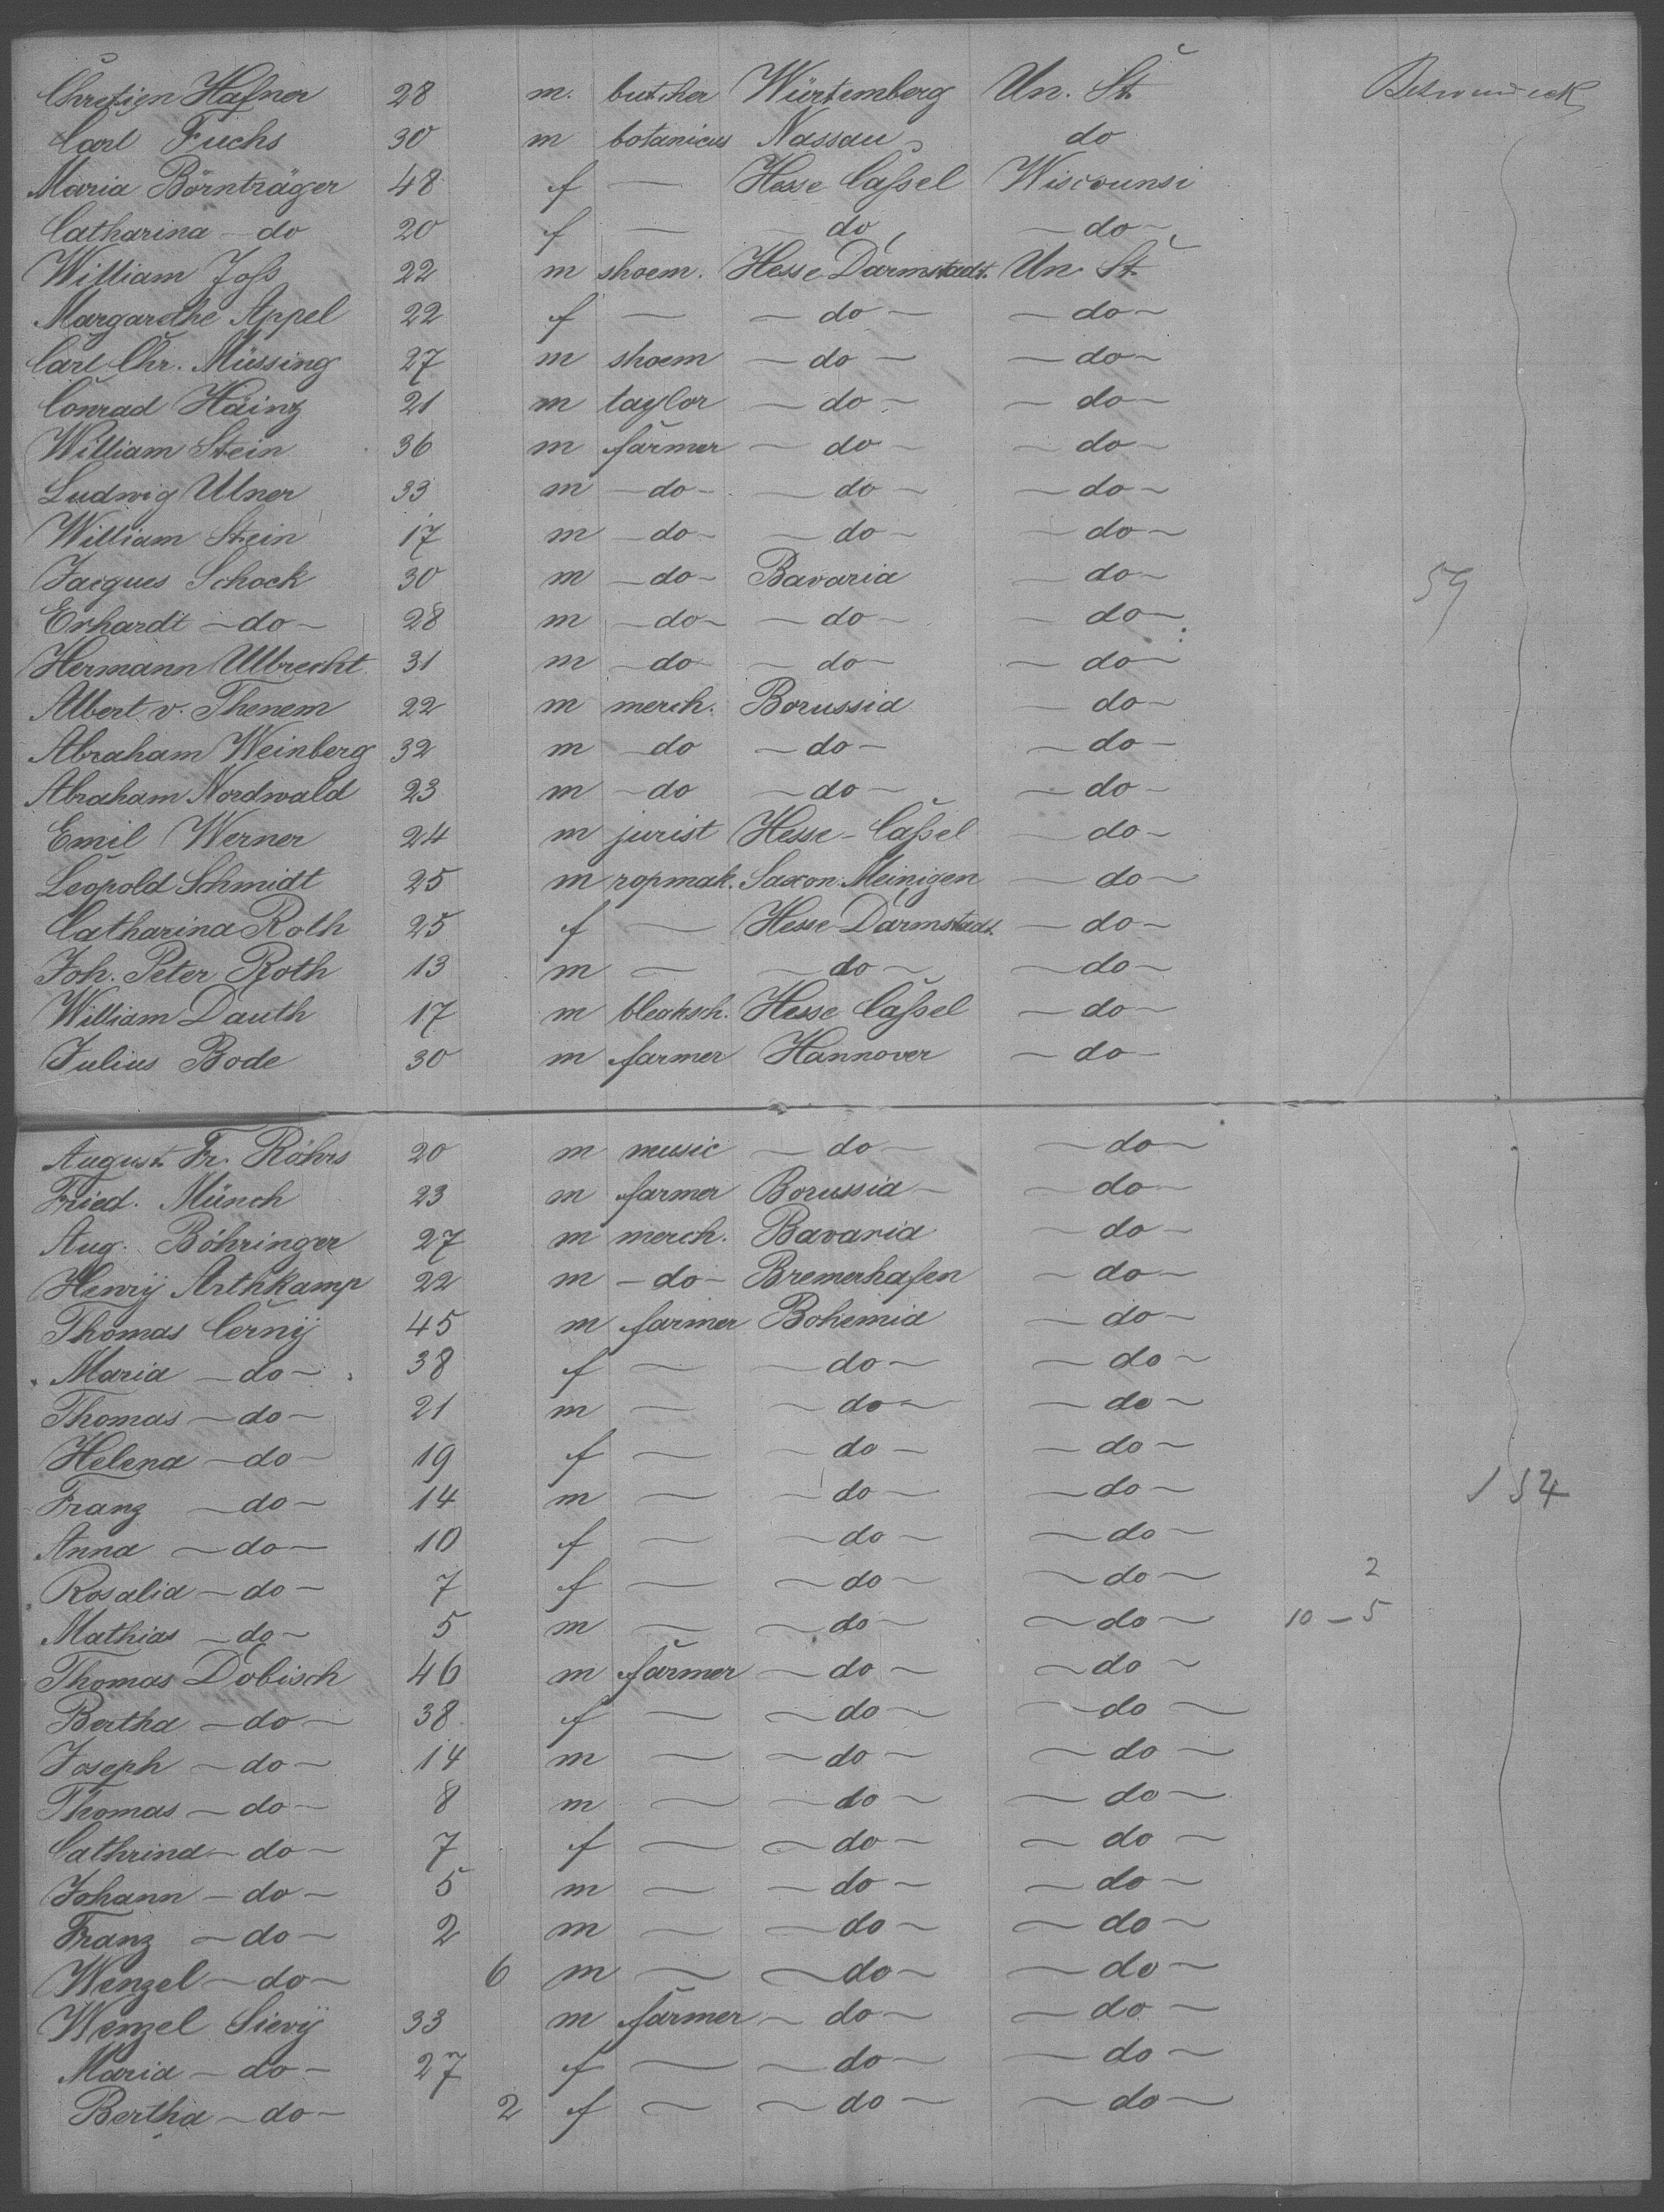 Chretien Hafner 28 m. butcher Würtemberg Un. St.
Carl Fuchs 30 m botanicus Nassau do
Maria Börnträger 48 f — Hesse Cassel Wiscounsi
Catharina — do 20 f — — do — do —
William Joss 22 m shoem. Hesse Darmstadt. Un. St.
Margarethe Appel 22 f — — do — — do —
Carl Chr. Müssing 27 m shoem — do — — do —
Conrad Häinz 21 m taylor — do — — do —
William Stein 36 m farmer — do — — do —
Ludwig Ulner 33 m — do — — do — — do —
William Stein 17 m — do — — do — — do —
Jacques Schock 30 m — do — Bavaria — do — 59
Erhardt — do — 28 m — do — — do — — do —
Hermann Ulbrecht 31 m — do — — do — — do —
Albert v. Thenem 22 m merch. Borussia — do —
Abraham Weinberg 32 m — do — do — — do —
Abraham Nordwald 23 m — do — do — — do —
Emil Werner 24 m jurist Hesse-Cassel — do —
Leopold Schmidt 25 m ropmak. Saxon. Meinigen — do —
Catharina Roth 25 f — Hesse Darmstadt. — do —
Joh. Peter Roth 13 m — — do — — do —
William Dauth 17 m bleaksch. Hesse Cassel — do —
Julius Bode 30 m farmer Hannover — do —
August Fr. Röhrs 20 m music — do — — do —
Fried. Münch 23 m farmer Borussia — — do —
Aug. Böhringer 27 m merch. Bavaria — do —
Henry Arthkamp 22 m — do — Bremerhafen — do —
Thomas Černÿ 45 m farmer Bohemia — do —
Maria — do — 38 f — — do — — do —
Thomas — do — 21 m — — do — — do —
Helena — do — 19 f — — do — — do —
Franz — do — 14 m — — do — — do — 154
Anna — do — 10 f — — do — — do —
Rosalia — do — 7 f — — do — — do — 2
Mathias — do — 5 m — — do — — do — 10 — 5
Thomas Dobisch 46 m farmer — do — — do —
Bertha — do — 38 f — — do — — do —
Joseph — do — 14 m — — do — — do —
Thomas — do — 8 m — — do — — do —
Cathrina — do — 7 f — — do — — do —
Johann — do — 5 m — — do — — do —
Franz — do — 2 m — — do — — do —
Wenzel — do — 6 m — — do — — do —
Wenzel Sievÿ 33 m farmer — do — — do —
Maria — do — 27 f — — do — — do —
Bertha — do — 2 f — — do — — do —